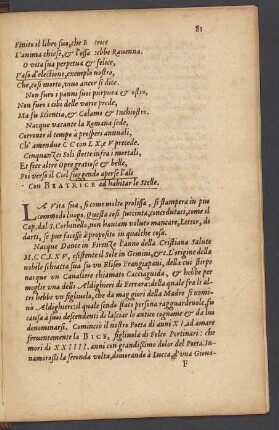 81
Finito il libro suo, che B trice
L'anima chiese, & l'ossa ebbe Rauenna.
O vita sua perpetua & felice,
Vaso d'elettione, exemplo nostro,
Che, così morto, viuo ancor si dice.
Non furo i panni suoi purpura & ostro,
Non furo i cibi delle varie prede,
Ma fu Scientia, & Calamo & Inchiostro.
Nacque vacante la Romana sede,
Corrente il tempo à prosperi annuali,
Ch' amendue C C con LXV procede.
Cinquanzei Soli stette infra i mortali,
Et fece altre Opre gratiose & belle,
Poi verso il Ciel fuggendo aperse l'ali
Con BEATRICE ad habitar le Stelle.
LA Vita sua, si come molto prolissa, si stamperà in piu
commodo luogo. Questa così succinta, concedutaci, come il
Cap. del S. Corbinello, non hauiam voluto mancare, Lettor, di
darti, se pur facesse à proposito in qualche cosa.
Nacque Dante in Firenze l'anno della Christiana Salute
M.CC.LXV, esistente il Sole in Gemini, & L'origine della
nobile schiatta sua fu un Eliseo Frangiapani, della cui stirpe
nacque un Caualiere chiamato Cacciaguida, & hebbe per
moglie vna delli Aldighieri di Ferrara: della quale fra li al-
tri hebbe vn figliuolo, che da maggiori della Madre si nomi-
nò Aldighieri: il quale sendo stato persona ragguardeuole, fu
causa à suoi descendenti di lasciar lo antico cognome & da lui
denominarsi. Cominciò il nostro Poeta di anni XI, ad amare
feruentemente la BICE, figliuola di Folco Portinari: che
morì di XXIIII. anni con grandissimo dolor del Poeta. In-
namorossi la seconda volta, dimorando à Lucca, d'vna Gioua-
F